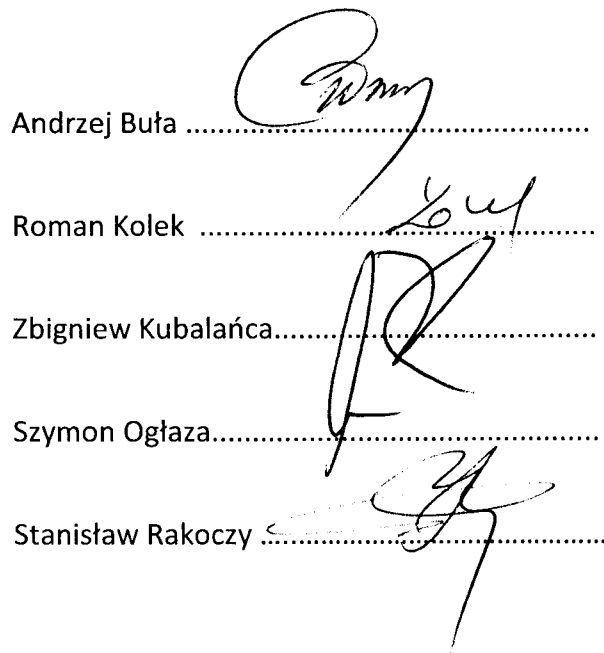 Andrzej Buła ..................................................
Roman Kolek ................................................
Zbigniew Kubalańca.......................................
Szymon Ogłaza...............................................
Stanisław Rakoczy ..........................................